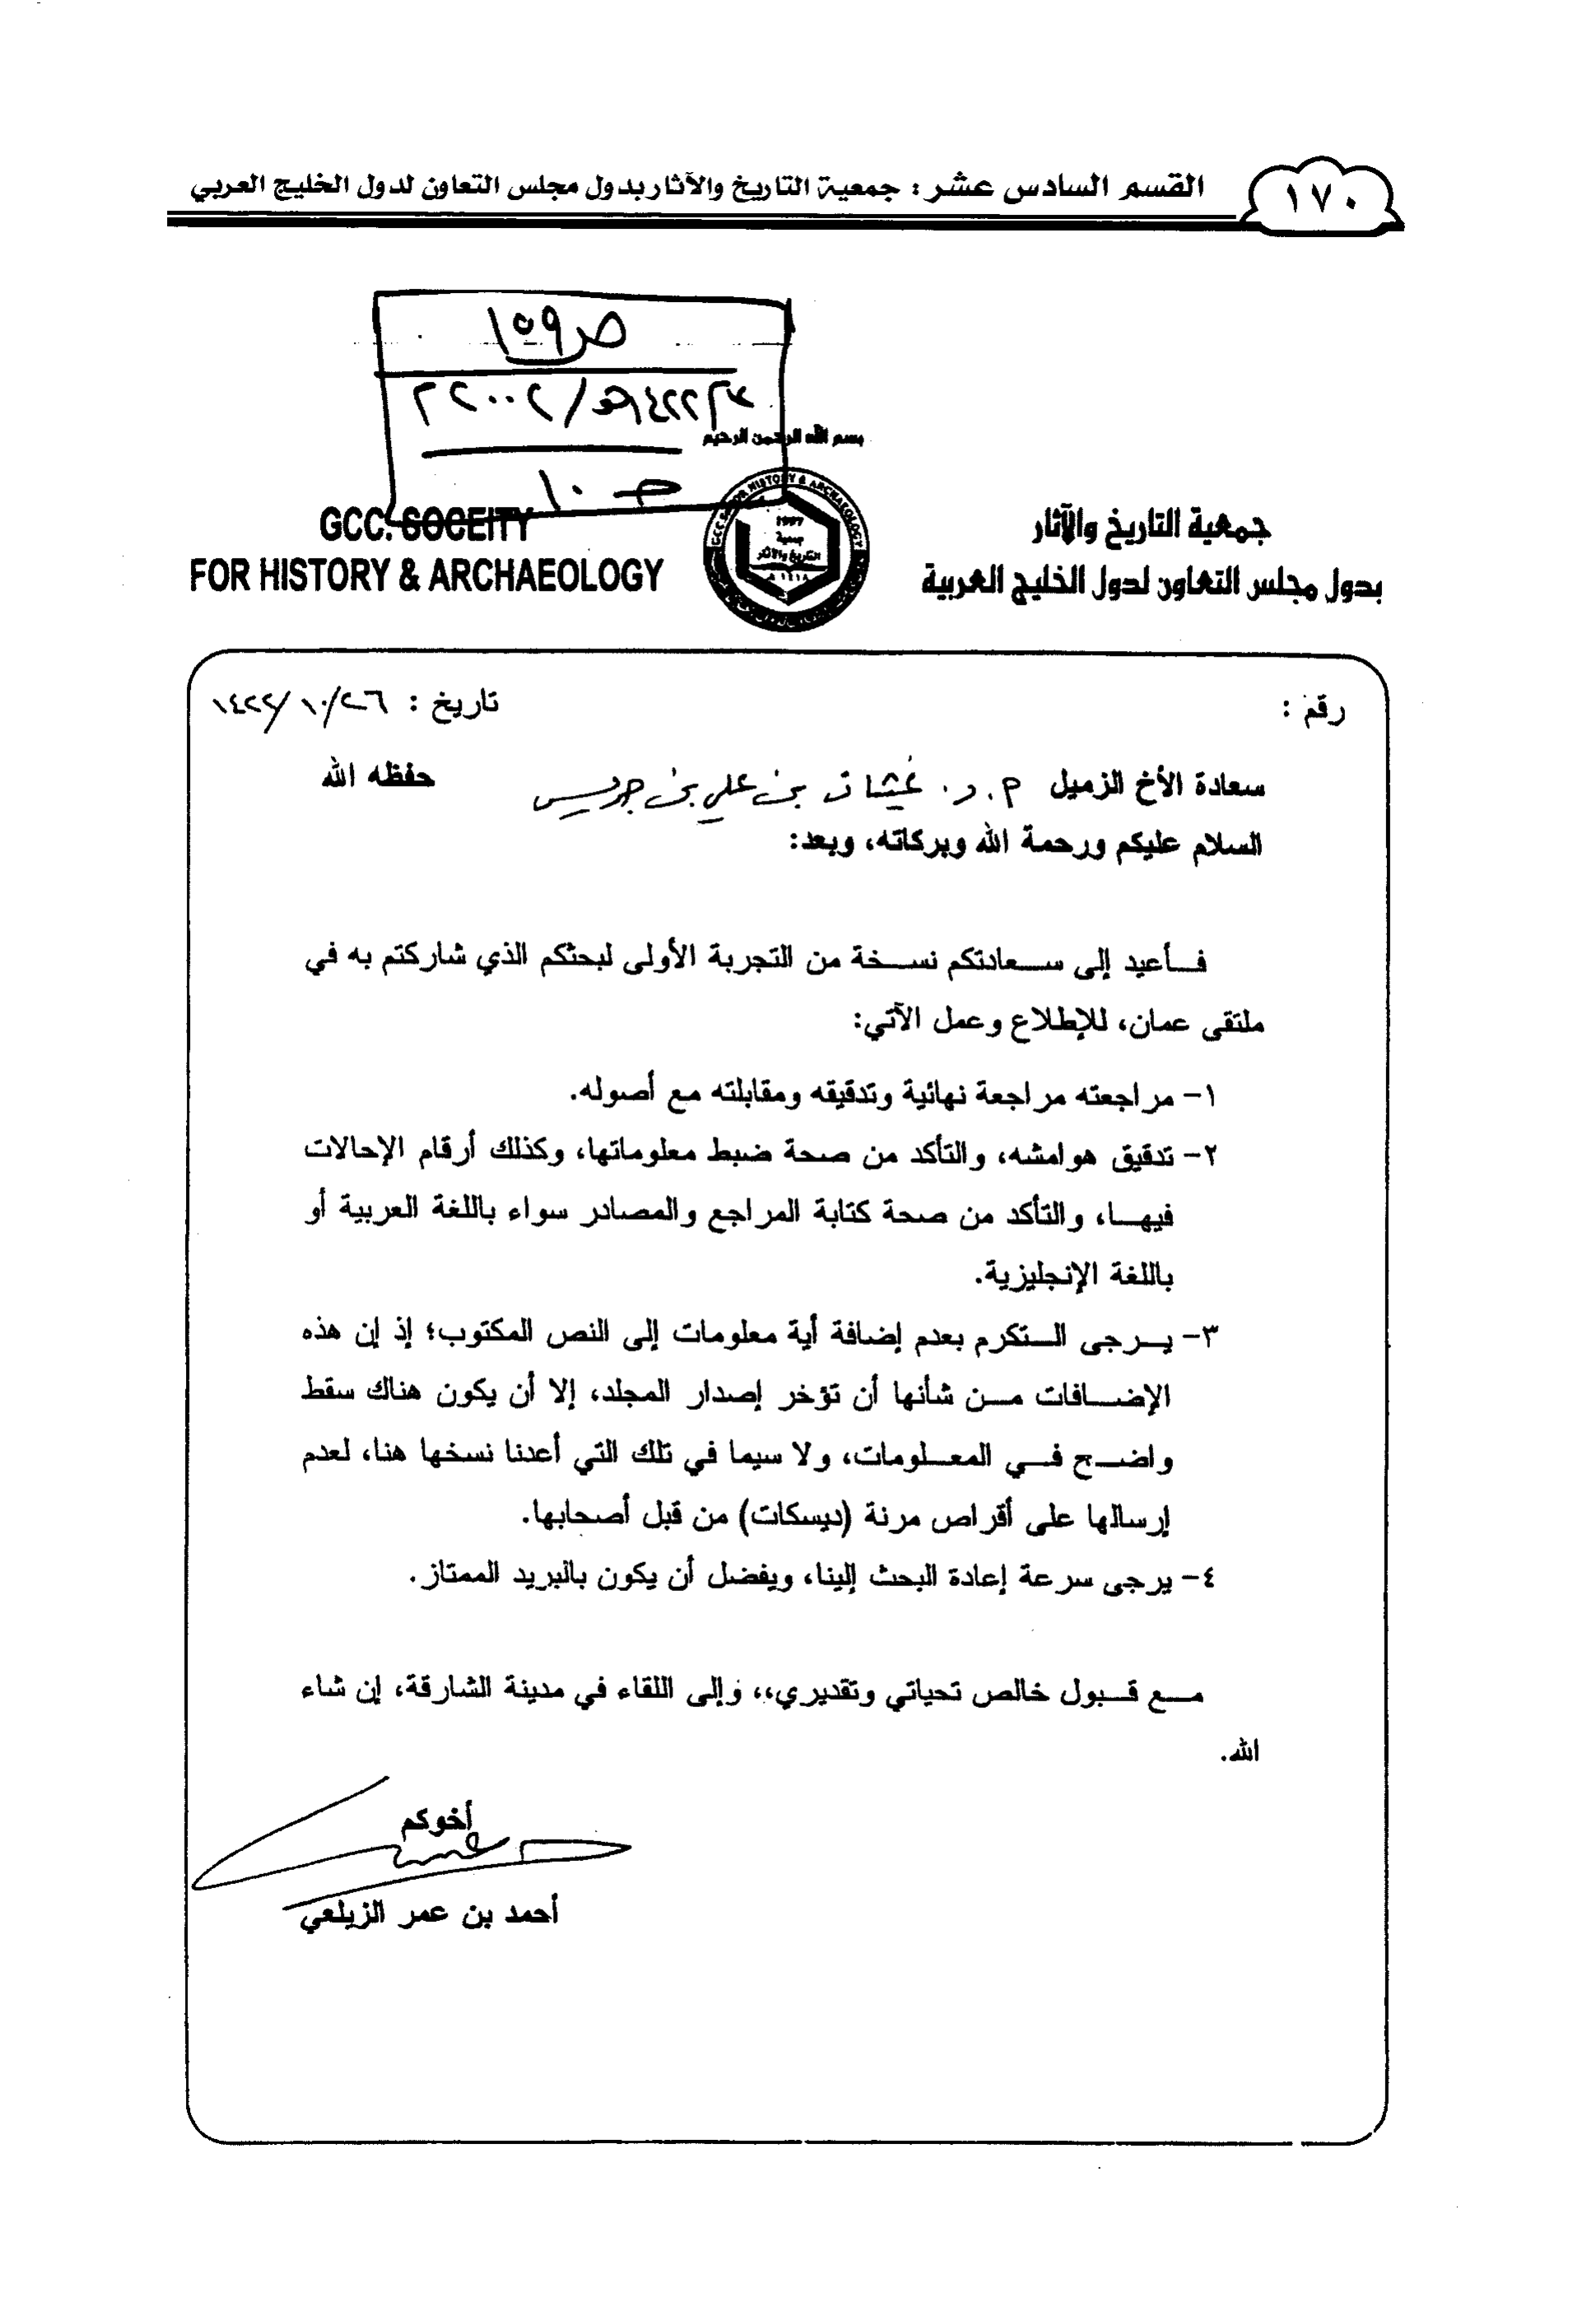 القسم السادس عشر : جمعية التاريخ والآثار بدول مجلس التعاون لدول الخليج العربي
١٧٠
ص١٥٩
بسم الله الرحمن الرحيم
GCC. SOCEITY
FOR HISTORY & ARCHAEOLOGY
1997
جمعية
التاريخ والآثار
١٤١٨هـ
جمعية التاريخ والآثار
بدول مجلس التعاون لدول الخليج العربية
رقم :
تاريخ : ١٤٢٢/١٠/٢٦
سعادة الأخ الزميل م.د. غيثان بن علي بن جريس حفظه الله
السلام عليكم ورحمة الله وبركاته، وبعد:
فـأعيد إلى سـعادتكم نسـخة من التجربة الأولى لبحثكم الذي شاركتم به في
ملتقى عمان، للإطلاع وعمل الآتي:
١- مراجعته مراجعة نهائية وتدقيقه ومقابلته مع أصوله.
٢- تدقيق هوامشه، والتأكد من صحة ضبط معلوماتها، وكذلك أرقام الإحالات
فيهـا، والتأكد من صحة كتابة المراجع والمصادر سواء باللغة العربية أو
باللغة الإنجليزية.
٣- يـرجى الـتكرم بعدم إضافة أية معلومات إلى النص المكتوب؛ إذ إن هذه
الإضـافات مـن شأنها أن تؤخر إصدار المجلد، إلا أن يكون هناك سقط
واضـح فـي المعـلومات، ولا سيما في تلك التي أعدنا نسخها هنا، لعدم
إرسالها على أقراص مرنة (ديسكات) من قبل أصحابها.
٤- يرجى سرعة إعادة البحث إلينا، ويفضل أن يكون بالبريد الممتاز.
مـع قـبول خالص تحياتي وتقديري،، وإلى اللقاء في مدينة الشارقة، إن شاء
الله.
أخوكم
أحمد بن عمر الزيلعي